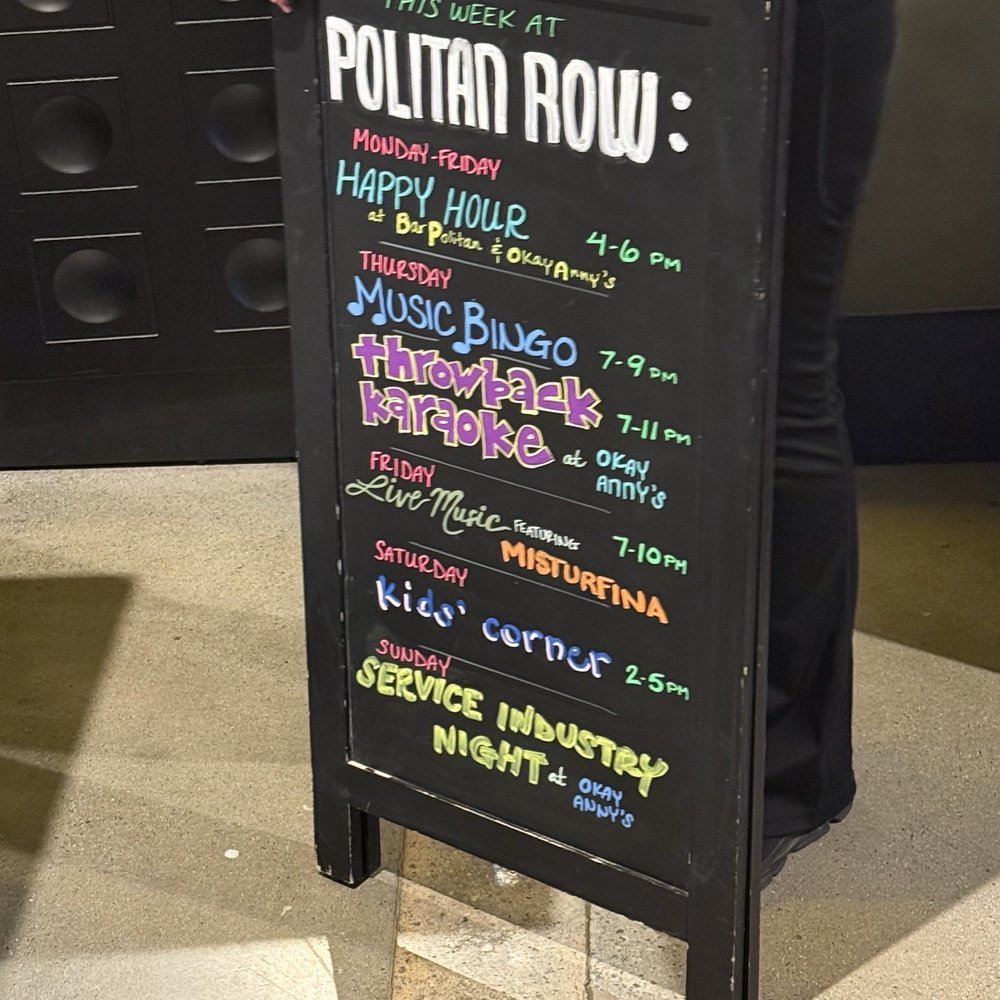 THIS WEEK AT
POLITAN ROW:
MONDAY-FRIDAY
HAPPY HOUR
at Bar Politan & Okay Anny's
4-6 PM
THURSDAY
MUSIC BINGO 7-9 PM
throwback
karaoke 7-11 PM
at OKAY
ANNY'S
FRIDAY
Live Music FEATURING 7-10 PM
MISTURFINA
SATURDAY
Kids' corner 2-5 PM
SUNDAY
SERVICE INDUSTRY
NIGHT at OKAY
ANNY'S